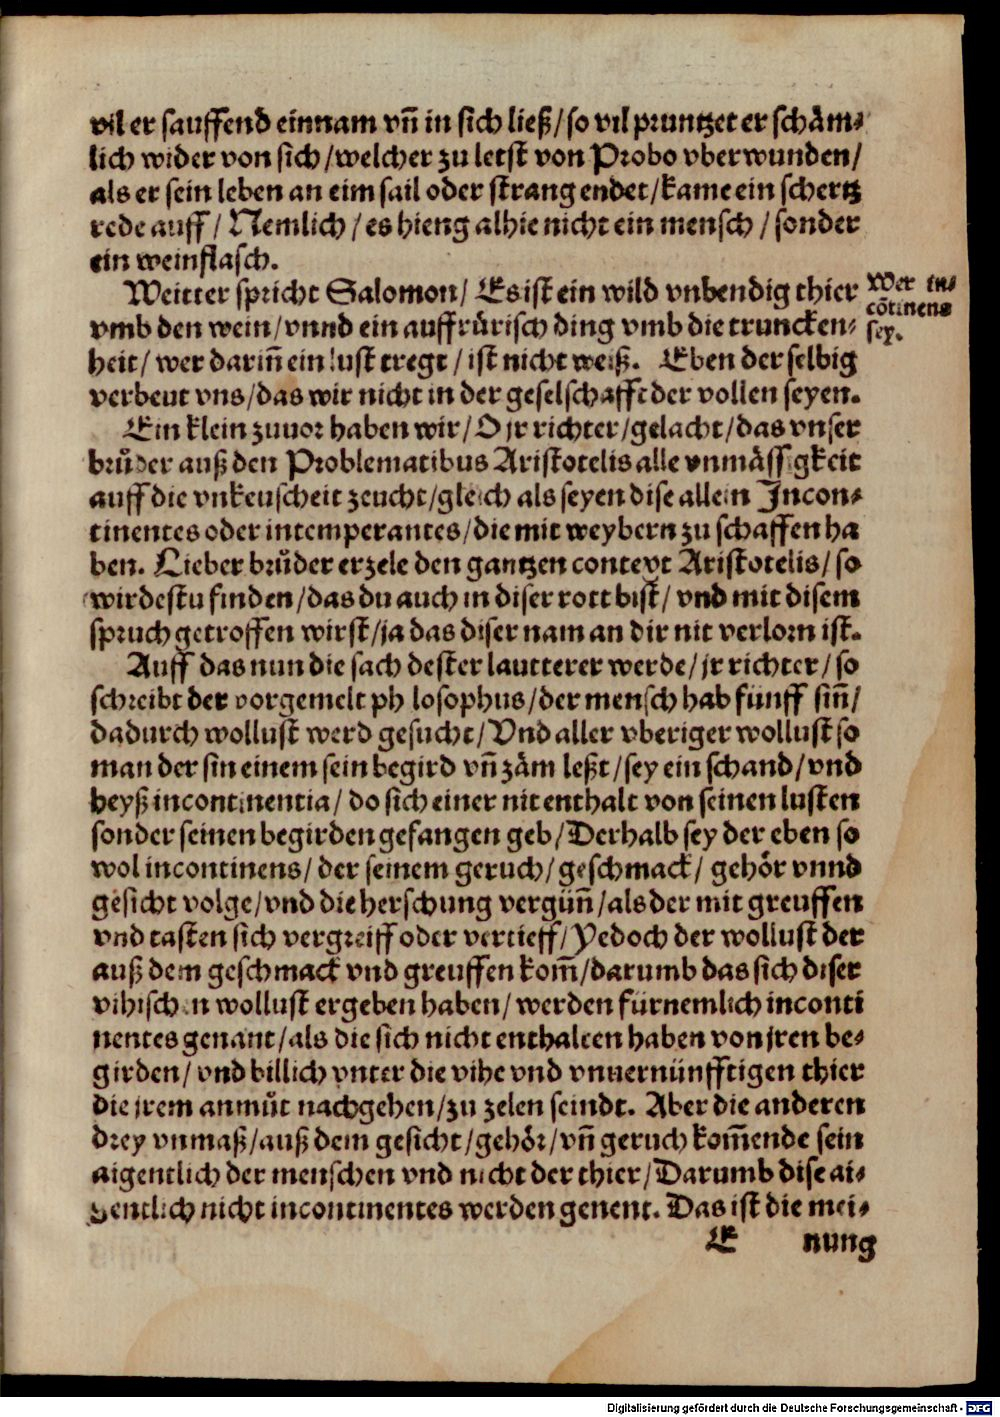 vil er sauffend einnam vñ in sich ließ/so vil pruntzet er schäm⸗
lich wider von sich/welcher zu letst von Probo vberwunden/
als er sein leben an eim sail oder strang endet/kame ein schertz
rede auff/ Nemlich/es hieng alhie nicht ein mensch/sonder
ein weinflasch.
Weitter spricht Salomon/ Es ist ein wild vnbendig thier
vmb den wein/vnnd ein auffrürisch ding vmb die truncken⸗
heit/ wer dariñ ein lust tregt/ist nicht weiß. Eben der selbig
verbeut vns/das wir nicht in der geselschafft der vollen seyen.
Wer in⸗
cõtinens
sey.
Ein klein zuuor haben wir/O jr richter/gelacht/das vnser
brůder auß den Problematibus Aristotelis alle vnmässigkeit
auff die vnkeuscheit zeucht/gleich als seyen dise allein Incon⸗
tinentes oder intemperantes/die mit weybern zu schaffen ha
ben. Lieber brůder erzele den gantzen context Aristotelis/so
wirdestu finden/das du auch in diser rott bist/ vnd mit disem
spruch getroffen wirst/ja das diser nam an dir nit verlorn ist.
Auff das nun die sach dester lautterer werde/jr richter/so
schreibt der vorgemelt philosophus/der mensch hab fünff siñ/
dadurch wollust werd gesucht/Vnd aller vberiger wollust so
man der sin einem sein begird vñ zäm leßt/sey ein schand/vnd
heyß incontinentia/ do sich einer nit enthalt von seinen lusten
sonder seinen begirden gefangen geb/Derhalb sey der eben so
wol incontinens/ der seinem geruch/geschmack/ gehör vnnd
gesicht volge/vnd die herschung vergüñ/als der mit greuffen
vnd tasten sich vergreiff oder vertieff/Yedoch der wollust der
auß dem geschmack vnd greuffen kom̃/darumb das sich diser
vihischen wollust ergeben haben/ werden fürnemlich inconti
nentes genant/als die sich nicht enthalten haben von jren be⸗
girden/ vnd billich vnter die vihe vnd vnuernünfftigen thier
die jrem anmůt nachgehen/zu zelen seindt. Aber die anderen
drey vnmaß/auß dem gesicht/gehör/vñ geruch kom̃ende sein
aigentlich der menschen vnd nicht der thier/Darumb dise ai⸗
gentlich nicht incontinentes werden genent. Das ist die mei⸗
E nung
Digitalisierung gefördert durch die Deutsche Forschungsgemeinschaft - DFG